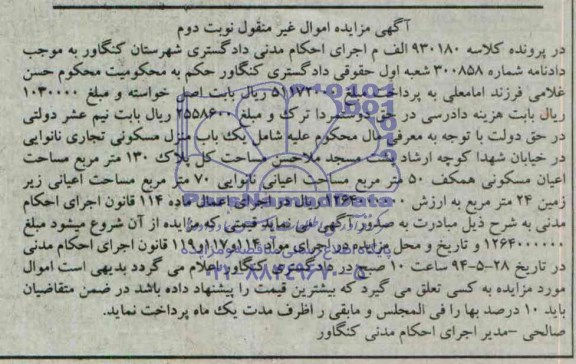 آگهی مزایده اموال غیر منقول نوبت دوم
در پرونده کلاسه ۹۳۰۱۸۰ الف م اجرای احکام مدنی دادگستری شهرستان کنگاور به موجب
دادنامه شماره ۳۰۰۸۵۸ شعبه اول حقوقی دادگستری کنگاور حکم به محکومیت محکوم حسن
غلامی فرزند امامعلی به پرداخت مبلغ ریال بابت اصل خواسته و مبلغ ۱۰۳۰۰۰۰
ریال بابت هزینه دادرسی در حق دوستمراد ترک و مبلغ ۲۵۵۸۶۰۰ ریال بابت نیم عشر دولتی
در حق دولت با توجه به معرفی مال محکوم علیه شامل یک باب منزل مسکونی تجاری نانوایی
در خیابان شهدا کوچه ارشاد پشت مسجد ملاحسن مساحت کل پلاک ۱۳۰ متر مربع مساحت
اعیان مسکونی همکف ۵۰ متر مربع مساحت اعیانی نانوایی ۷۰ متر مربع مساحت اعیانی زیر
زمین ۲۴ متر مربع به ارزش ریال در اجرای اعمال ماده ۱۱۴ قانون اجرای احکام
مدنی به شرح ذیل مبادرت به صدور آگهی می نماید قیمتی که مزایده از آن شروع میشود مبلغ
۱۲۶۴۰۰۰۰۰۰ و تاریخ و محل مزایده در اجرای مواد ۱۱۴ و ۱۱۷ و ۱۱۹ قانون اجرای احکام مدنی
در تاریخ ۲۸-۵-۹۴ ساعت ۱۰ صبح در دادگستری کنگاور اعلام می گردد بدیهی است اموال
مورد مزایده به کسی تعلق می گیرد که بیشترین قیمت را پیشنهاد داده باشد در ضمن متقاضیان
باید ۱۰ درصد بها را فی المجلس و مابقی را ظرف مدت یک ماه پرداخت نماید.
صالحی -مدیر اجرای احکام مدنی کنگاور